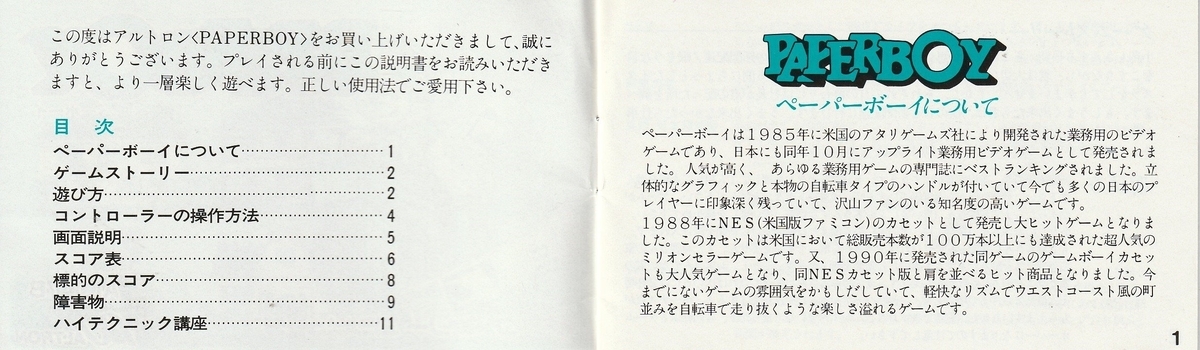 この度はアルトロン<PAPERBOY>をお買い上げいただきまして、誠に
ありがとうございます。プレイされる前にこの説明書をお読みいただき
ますと、より一層楽しく遊べます。正しい使用法でご愛用下さい。
目 次
ペーパーボーイについて……………………1
ゲームストーリー……………………2
遊び方……………………2
コントローラーの操作方法……………………4
画面説明……………………5
スコア表……………………6
標的のスコア……………………8
障害物……………………9
ハイテクニック講座……………………11
PAPERBOY
ペーパーボーイについて
ペーパーボーイは1985年に米国のアタリゲームズ社により開発された業務用のビデオ
ゲームであり、日本にも同年10月にアップライト業務用ビデオゲームとして発売されま
した。人気が高く、 あらゆる業務用ゲームの専門誌にベストランキングされました。立
体的なグラフィックと本物の自転車タイプのハンドルが付いていて今でも多くの日本のプ
レイヤーに印象深く残っていて、沢山ファンのいる知名度の高いゲームです。
1988年にNES(米国版ファミコン)のカセットとして発売し大ヒットゲームとなりま
した。このカセットは米国において総販売本数が100万本以上にも達成された超人気の
ミリオンセラーゲームです。又、1990年に発売された同ゲームのゲームボーイカセッ
トも大人気ゲームとなり、同NESカセット版と肩を並べるヒット商品となりました。今
までにないゲームの雰囲気をかもしだしていて、軽快なリズムでウエストコースト風の町
並みを自転車で走り抜くような楽しさ溢れるゲームです。
1